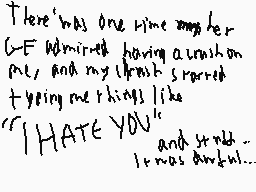 There was one time my her
GF admirred having a crush on
me, and my crush started
typing me things like
"I HATE YOU"
and stuff..
It was awful...